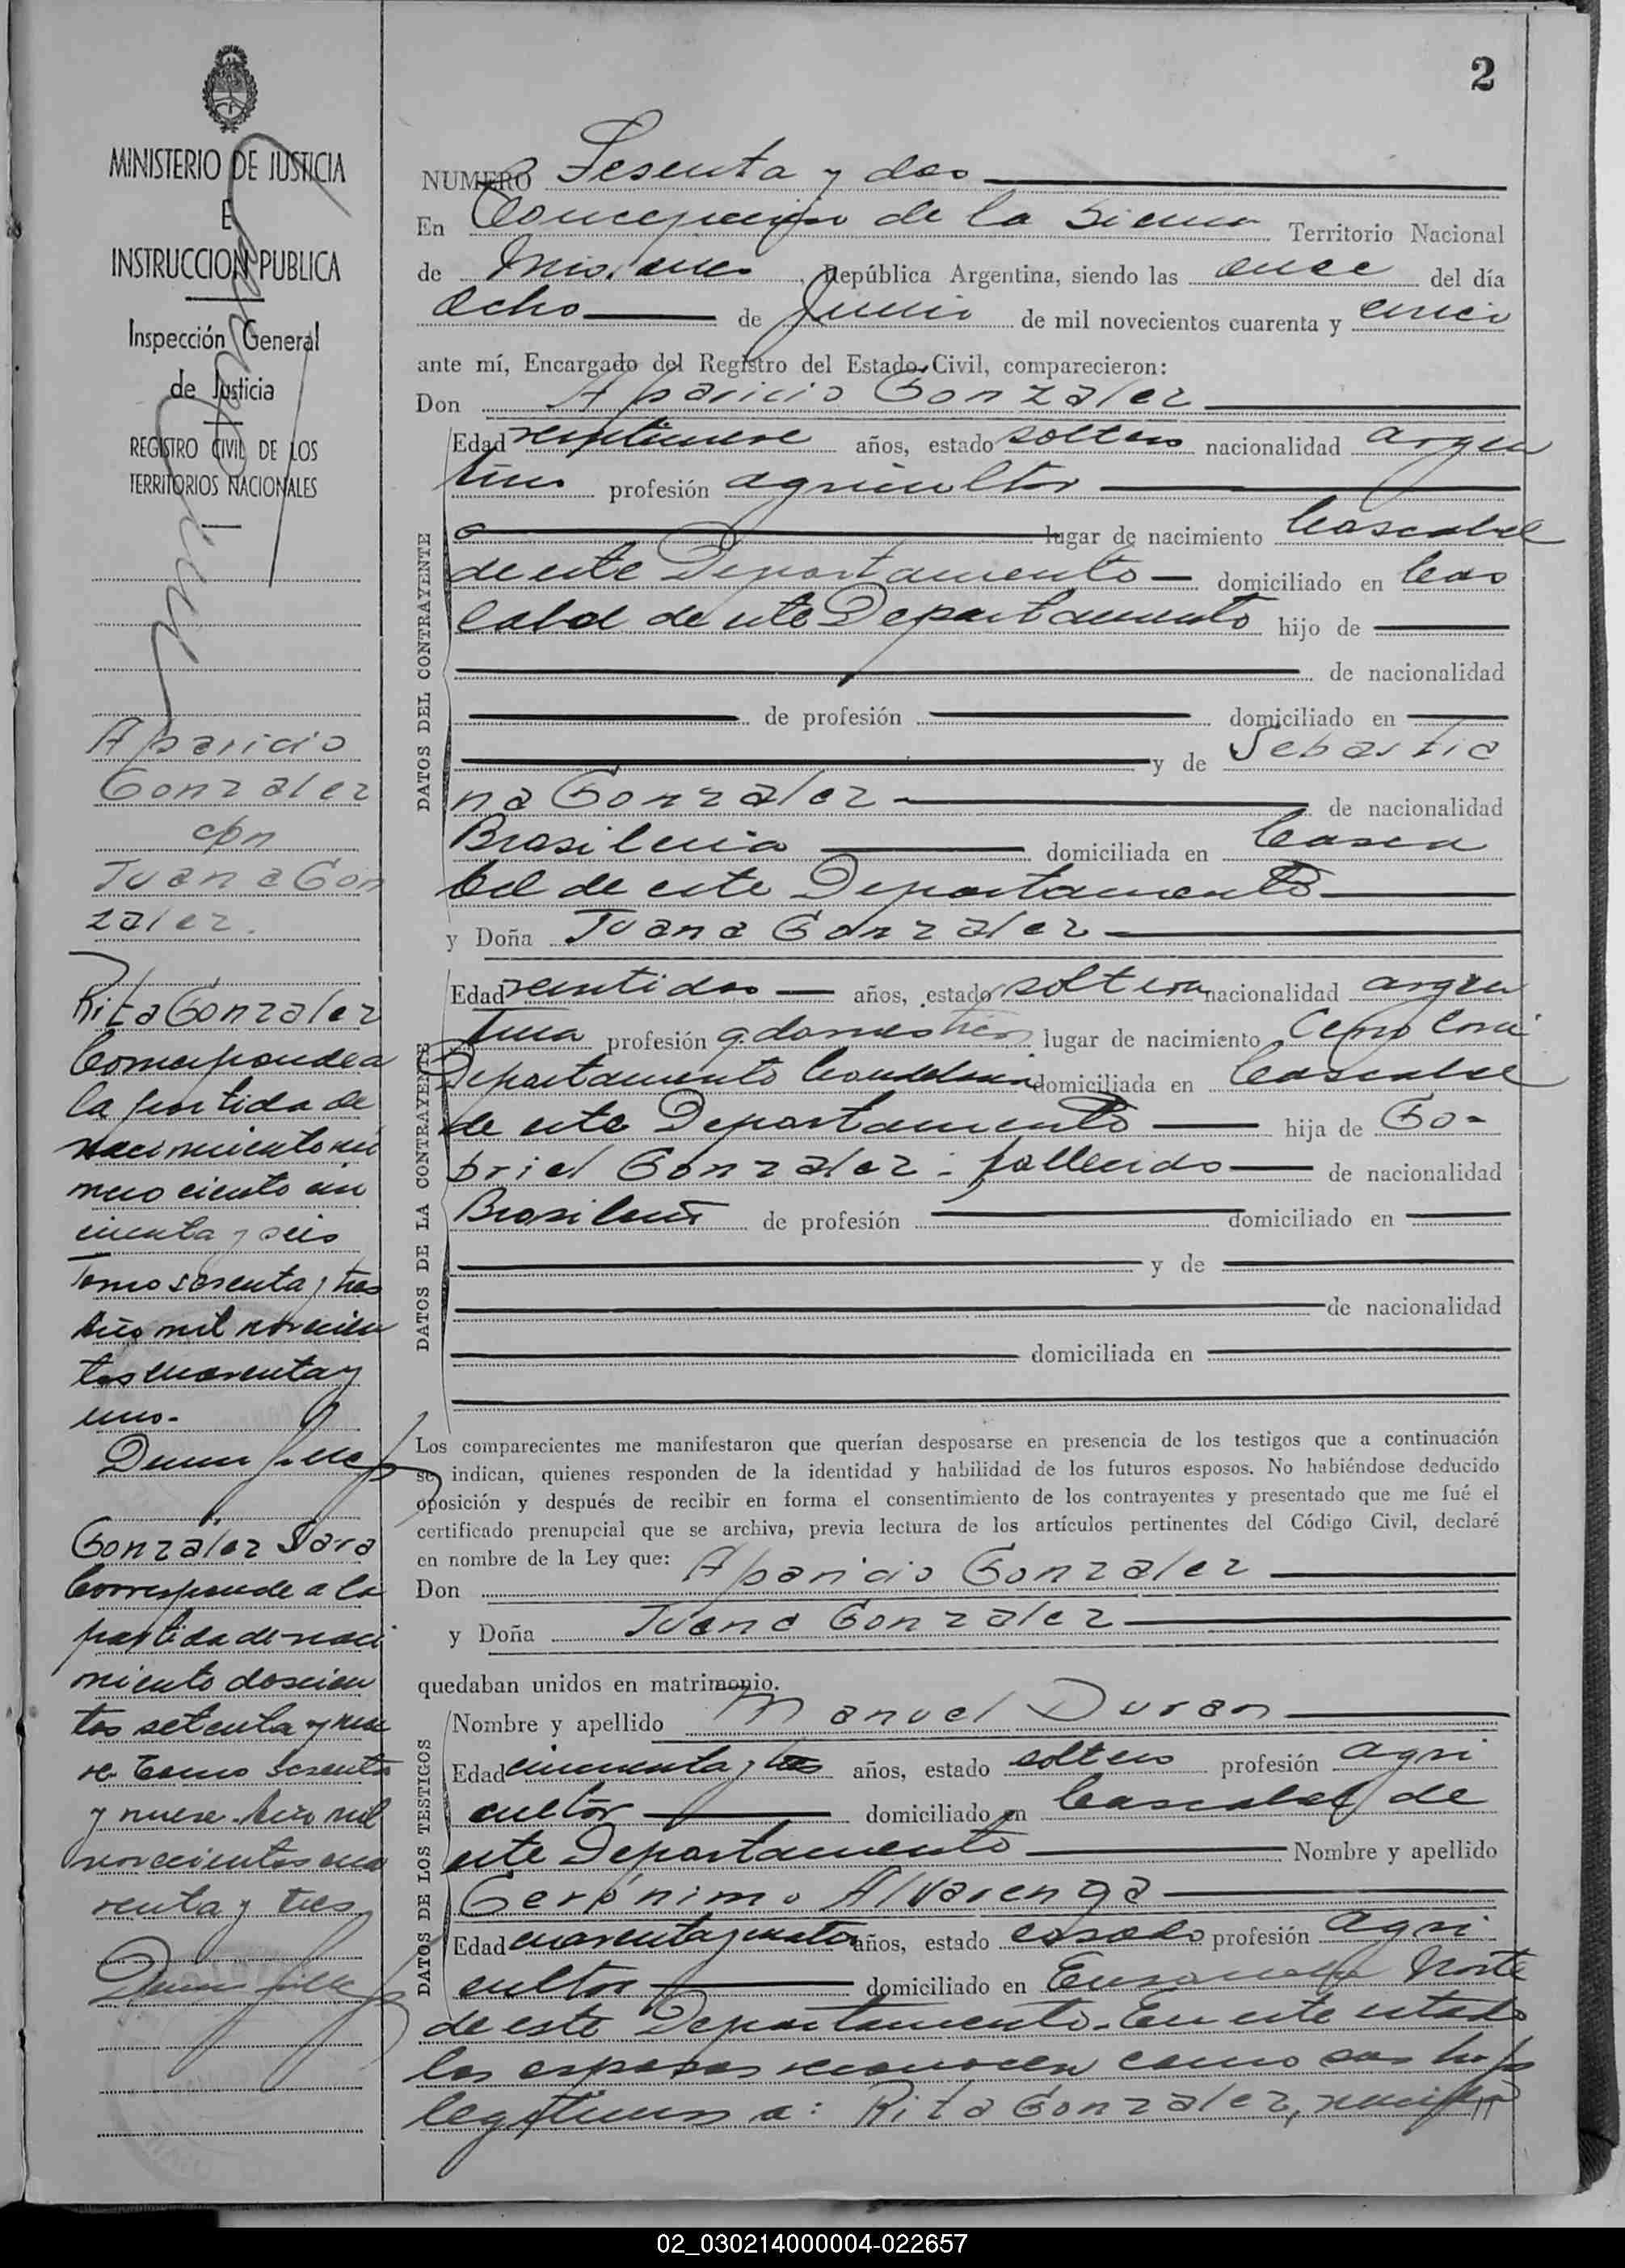 2
MINISTERIO DE JUSTICIA
E
INSTRUCCION PUBLICA
Inspección General
de Justicia
REGISTRO CIVIL DE LOS
TERRITORIOS NACIONALES
Aparicio
Gonzalez
con
Juana Gon
zalez.
Rita Gonzalez
Corresponde a
la partida de
nacimiento nú
mero ciento cin
cuenta y seis
Tomo sesenta y tres
Año mil novecien
tos cuarenta y
uno.
Gonzalez Sara
Corresponde a la
partida de naci
miento doscien
tos setenta y nue
ve Tomo Sesenta
y nueve. Año mil
novecientos cua
renta y tres
NUMERO Sesenta y dos
En Concepción de la Sierra Territorio Nacional
de Misiones, República Argentina, siendo las once del día
Ocho de Junio de mil novecientos cuarenta y cinco
ante mí, Encargado del Registro del Estado Civil, comparecieron:
Don Aparicio Gonzalez
DATOS DEL CONTRAYENTE
Edad veintinueve años, estado soltero nacionalidad argen
tino profesión agricultor
lugar de nacimiento Cascabel
de este Departamento domiciliado en Cas
cabel de este Departamento hijo de
de nacionalidad
de profesión domiciliado en
y de Sebastia
na Gonzalez de nacionalidad
Brasileña domiciliada en Casca
bel de este Departamento
y Doña Juana Gonzalez
DATOS DE LA CONTRAYENTE
Edad veintidos años, estado soltera nacionalidad argen
tina profesión q. domesticos lugar de nacimiento Cerro Corá
Departamento Candelaria domiciliada en Cascabel
de este Departamento hija de Ga-
briel Gonzalez - fallecido de nacionalidad
Brasileño de profesión domiciliado en
y de
de nacionalidad
domiciliada en
Los comparecientes me manifestaron que querían desposarse en presencia de los testigos que a continuación
se indican, quienes responden de la identidad y habilidad de los futuros esposos. No habiéndose deducido
oposición y después de recibir en forma el consentimiento de los contrayentes y presentado que me fué el
certificado prenupcial que se archiva, previa lectura de los artículos pertinentes del Código Civil, declaré
en nombre de la Ley que:
Don Aparicio Gonzalez
y Doña Juana Gonzalez
quedaban unidos en matrimonio.
DATOS DE LOS TESTIGOS
Nombre y apellido Manuel Duran
Edad cincuenta y tres años, estado soltero profesión agri
cultor domiciliado en Cascabel de
este Departamento Nombre y apellido
Gerónimo Alvarenga
Edad cuarenta y cuatro años, estado casado profesión agri
cultor domiciliado en Ensanche Norte
de este Departamento. En este estado
los esposos reconocen como sus hijos
legítimos a: Rita Gonzalez, nacida
02_030214000004-022657